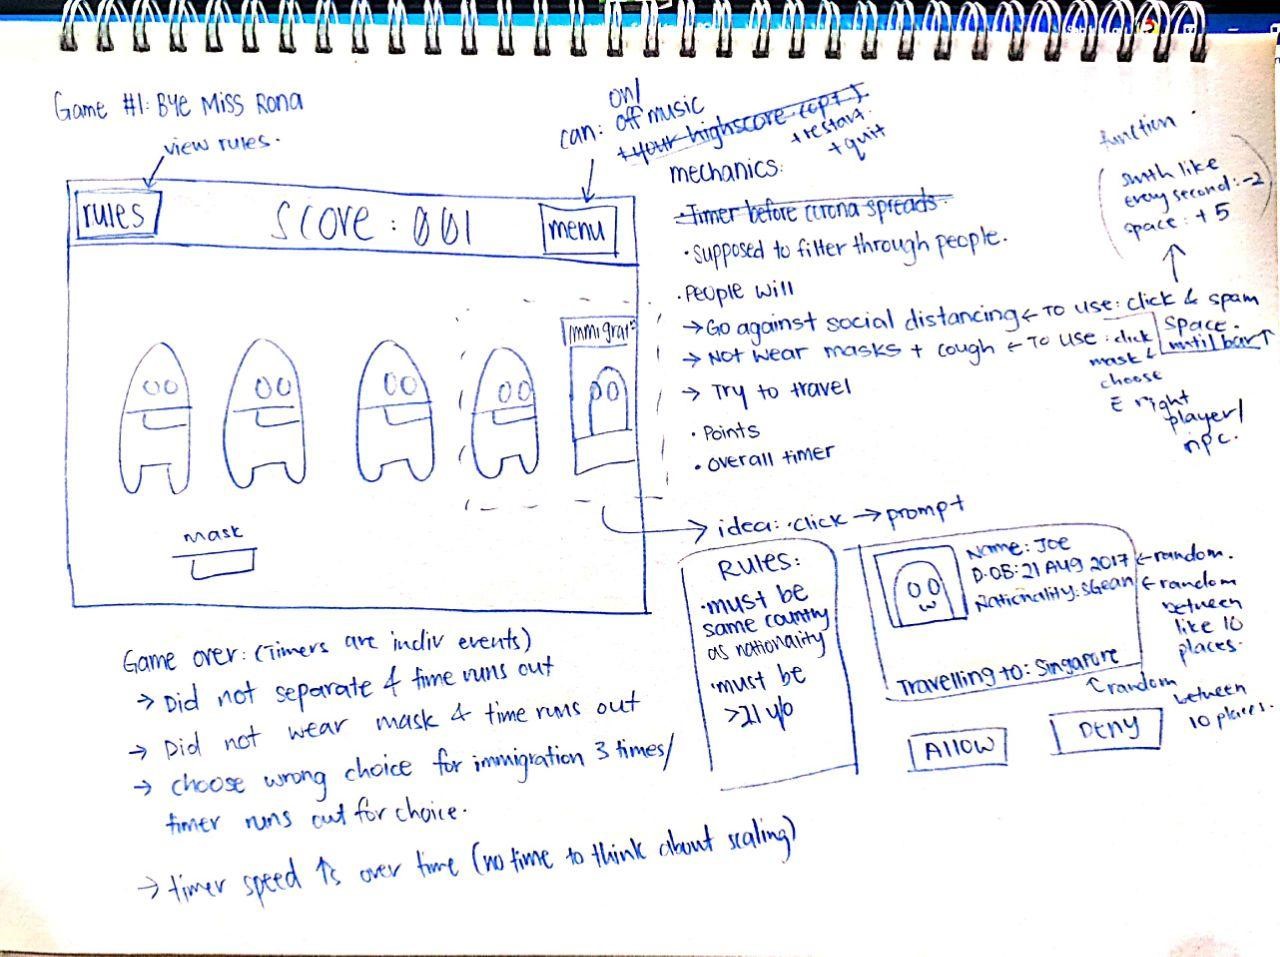 Game #1: Bye Miss Rona
view rules.
can: on/
off music
+ your highscore (opt.)
+ restart
+ quit
rules
SCORE: 001
menu
immigrat
mask
mechanics:
• Timer before corona spreads.
• supposed to filter through people.
• People will
→ Go against social distancing ← To use: click & spam
space.
until bar ↑
→ Not wear masks + cough ← To use: click
mask &
choose
E right
player/
npc.
→ Try to travel
• Points
• overall timer
function
smth like
every second: -2
space: +5
→ idea: • click → prompt
Rules:
• must be
same country
as nationality
• must be
>21 y/o
Name: Joe
D.OB: 21 AUG 2017 ← random.
Nationality: SGean ← random
between
like 10
places.
Travelling to: Singapore
random
between
10 places.
ALLOW
DENY
Game over: (Timers are indiv events)
→ Did not separate & time runs out
→ Did not wear mask & time runs out
→ choose wrong choice for immigration 3 times/
timer runs out for choice.
→ timer speed ↑s over time (no time to think about scaling)